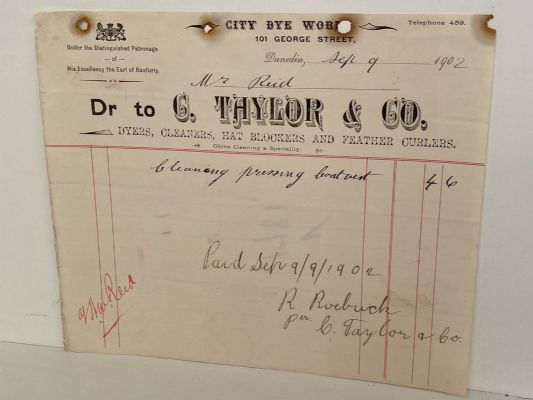 CITY DYE WOR
Telephone 489.
101 GEORGE STREET,
Under the Distinguished Patronage
— of —
His Excellency the Earl of Ranfurly.
Dunedin, Sep 9 1902
Mr Reid
Dr to C. TAYLOR & CO.
DYERS, CLEANERS, HAT BLOCKERS AND FEATHER CURLERS.
Glove Cleaning a Speciality.
Cleaning pressing coat vest 4 6
Paid Sep 9/9/1902
R. Roebuck
per C. Taylor & Co.
Reid